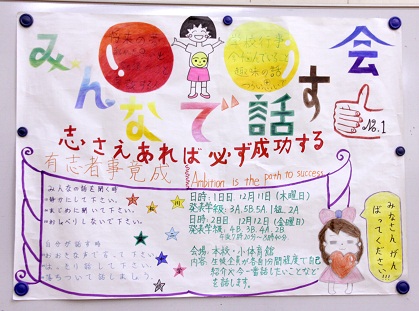 みんなで話す会
No.1
志さえあれば必ず成功する
有志者事竟成
Ambition is the path to success
みんなの話を聞く時
・静かにして下さい。
・まじめに聞いて下さい。
・おしゃべりしないで下さい。
自分が話す時
・おおきな声で話して下さい。
・はっきり話して下さい。
・落ちついて話しましょう。
日時:1日目 12月11日(木曜日)
発表学級: 3A,5B,5A,1組,2A
日時:2日目 12月12日(金曜日)
発表学級: 4B,3B,4A,2B
午後7時20分〜8時40分
会場:本校・小体育館
内容:生徒全員が各自1分間程度で自己
紹介や今一番話したいことなど
を話します。
みなさん がん
ばってください!!!